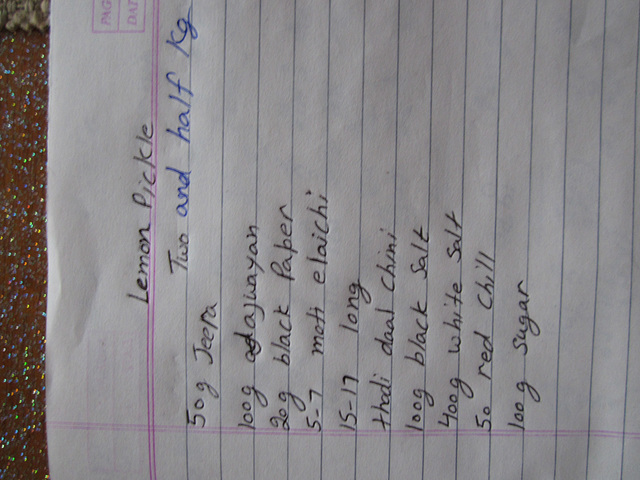 PAG
DAT
Lemon Pickle
Two and half Kg
50g Jeera
100g adajwayan
20g black Paper
5-7 moti elaichi
15-17 long
thodi daal chini
100g black salt
400g white salt
50 red chill
100g sugar